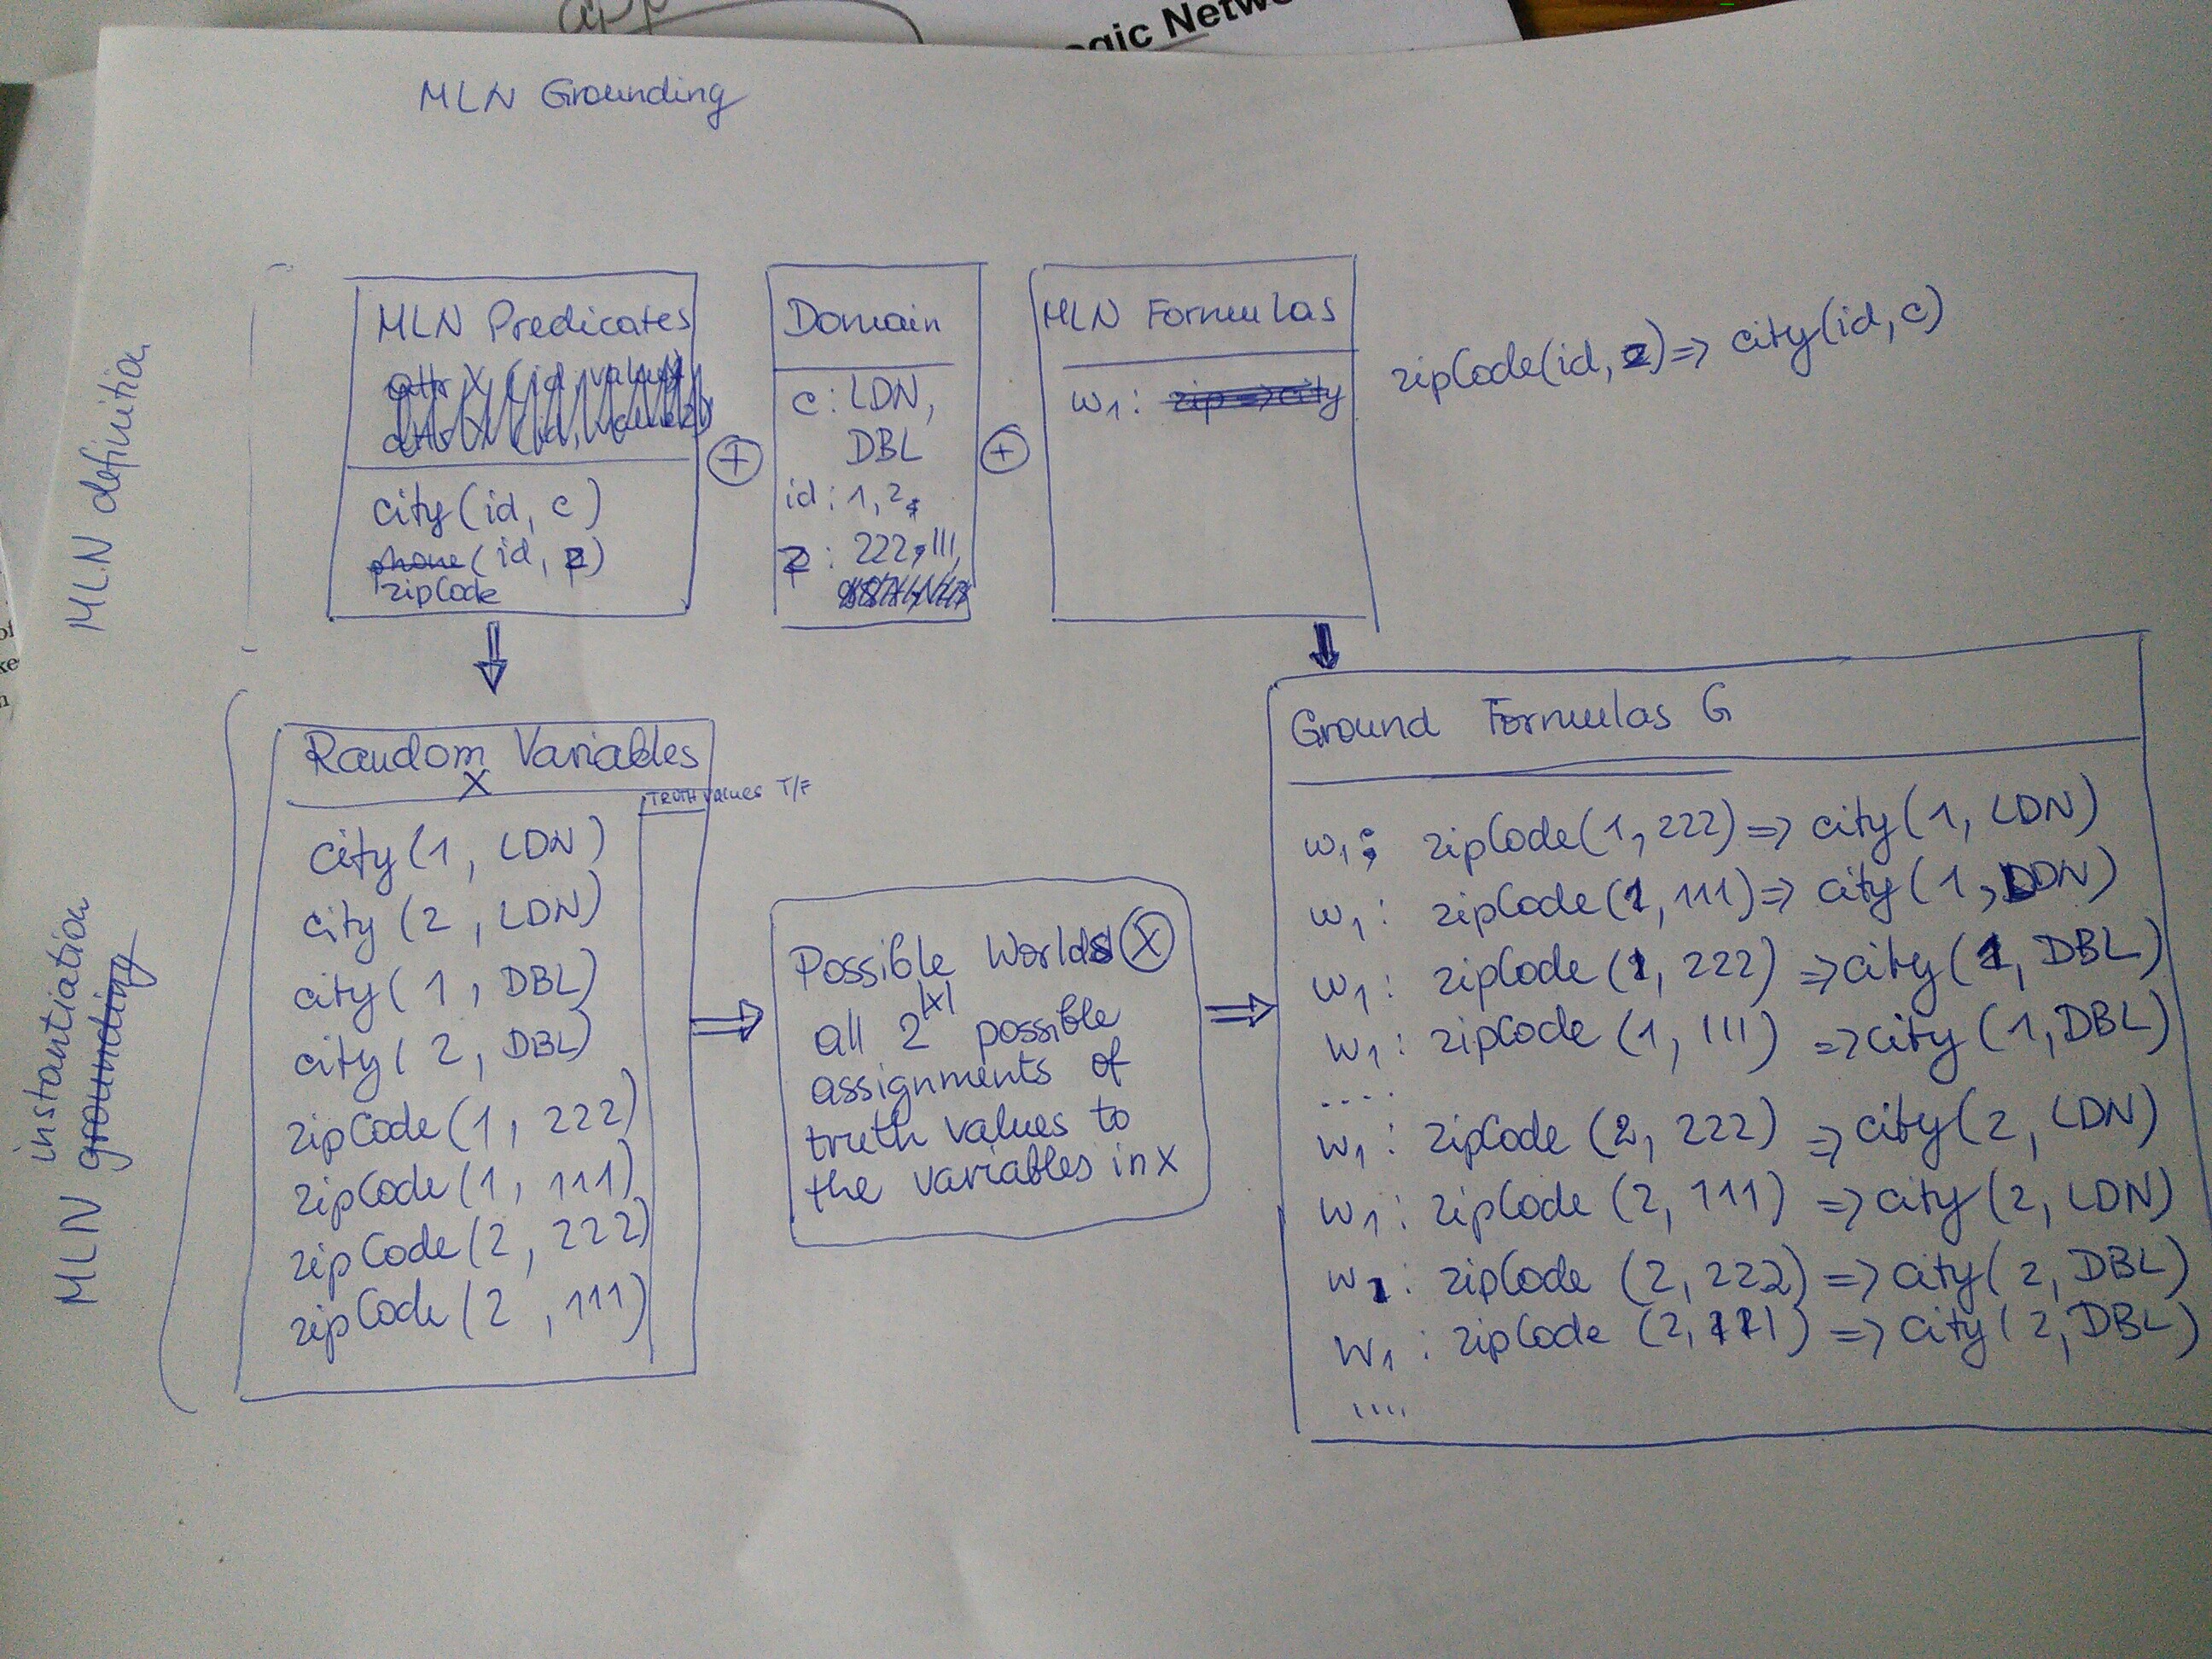 app
ogic Netw
MLN Grounding
MLN definition
MLN Predicates
city(id, c)
phone(id, z)
zipCode
+
Domain
c: LDN,
DBL
id: 1, 2,
z: 222, 111,
+
MLN Formulas
w1: zip => city
zipCode(id, z) => city(id, c)
of
ke
n
MLN instantiation
grounding
Random Variables
X
TRUTH values T/F
city(1, LDN)
city(2, LDN)
city(1, DBL)
city(2, DBL)
zipCode(1, 222)
zipCode(1, 111)
zipCode(2, 222)
zipCode(2, 111)
Possible Worlds X
all 2^|x| possible
assignments of
truth values to
the variables in X
Ground Formulas G
w1: zipCode(1, 222) => city(1, LDN)
w1: zipCode(1, 111) => city(1, LDN)
w1: zipCode(1, 222) => city(1, DBL)
w1: zipCode(1, 111) => city(1, DBL)
....
w1: zipCode(2, 222) => city(2, LDN)
w1: zipCode(2, 111) => city(2, LDN)
w1: zipCode(2, 222) => city(2, DBL)
w1: zipCode(2, 111) => city(2, DBL)
....